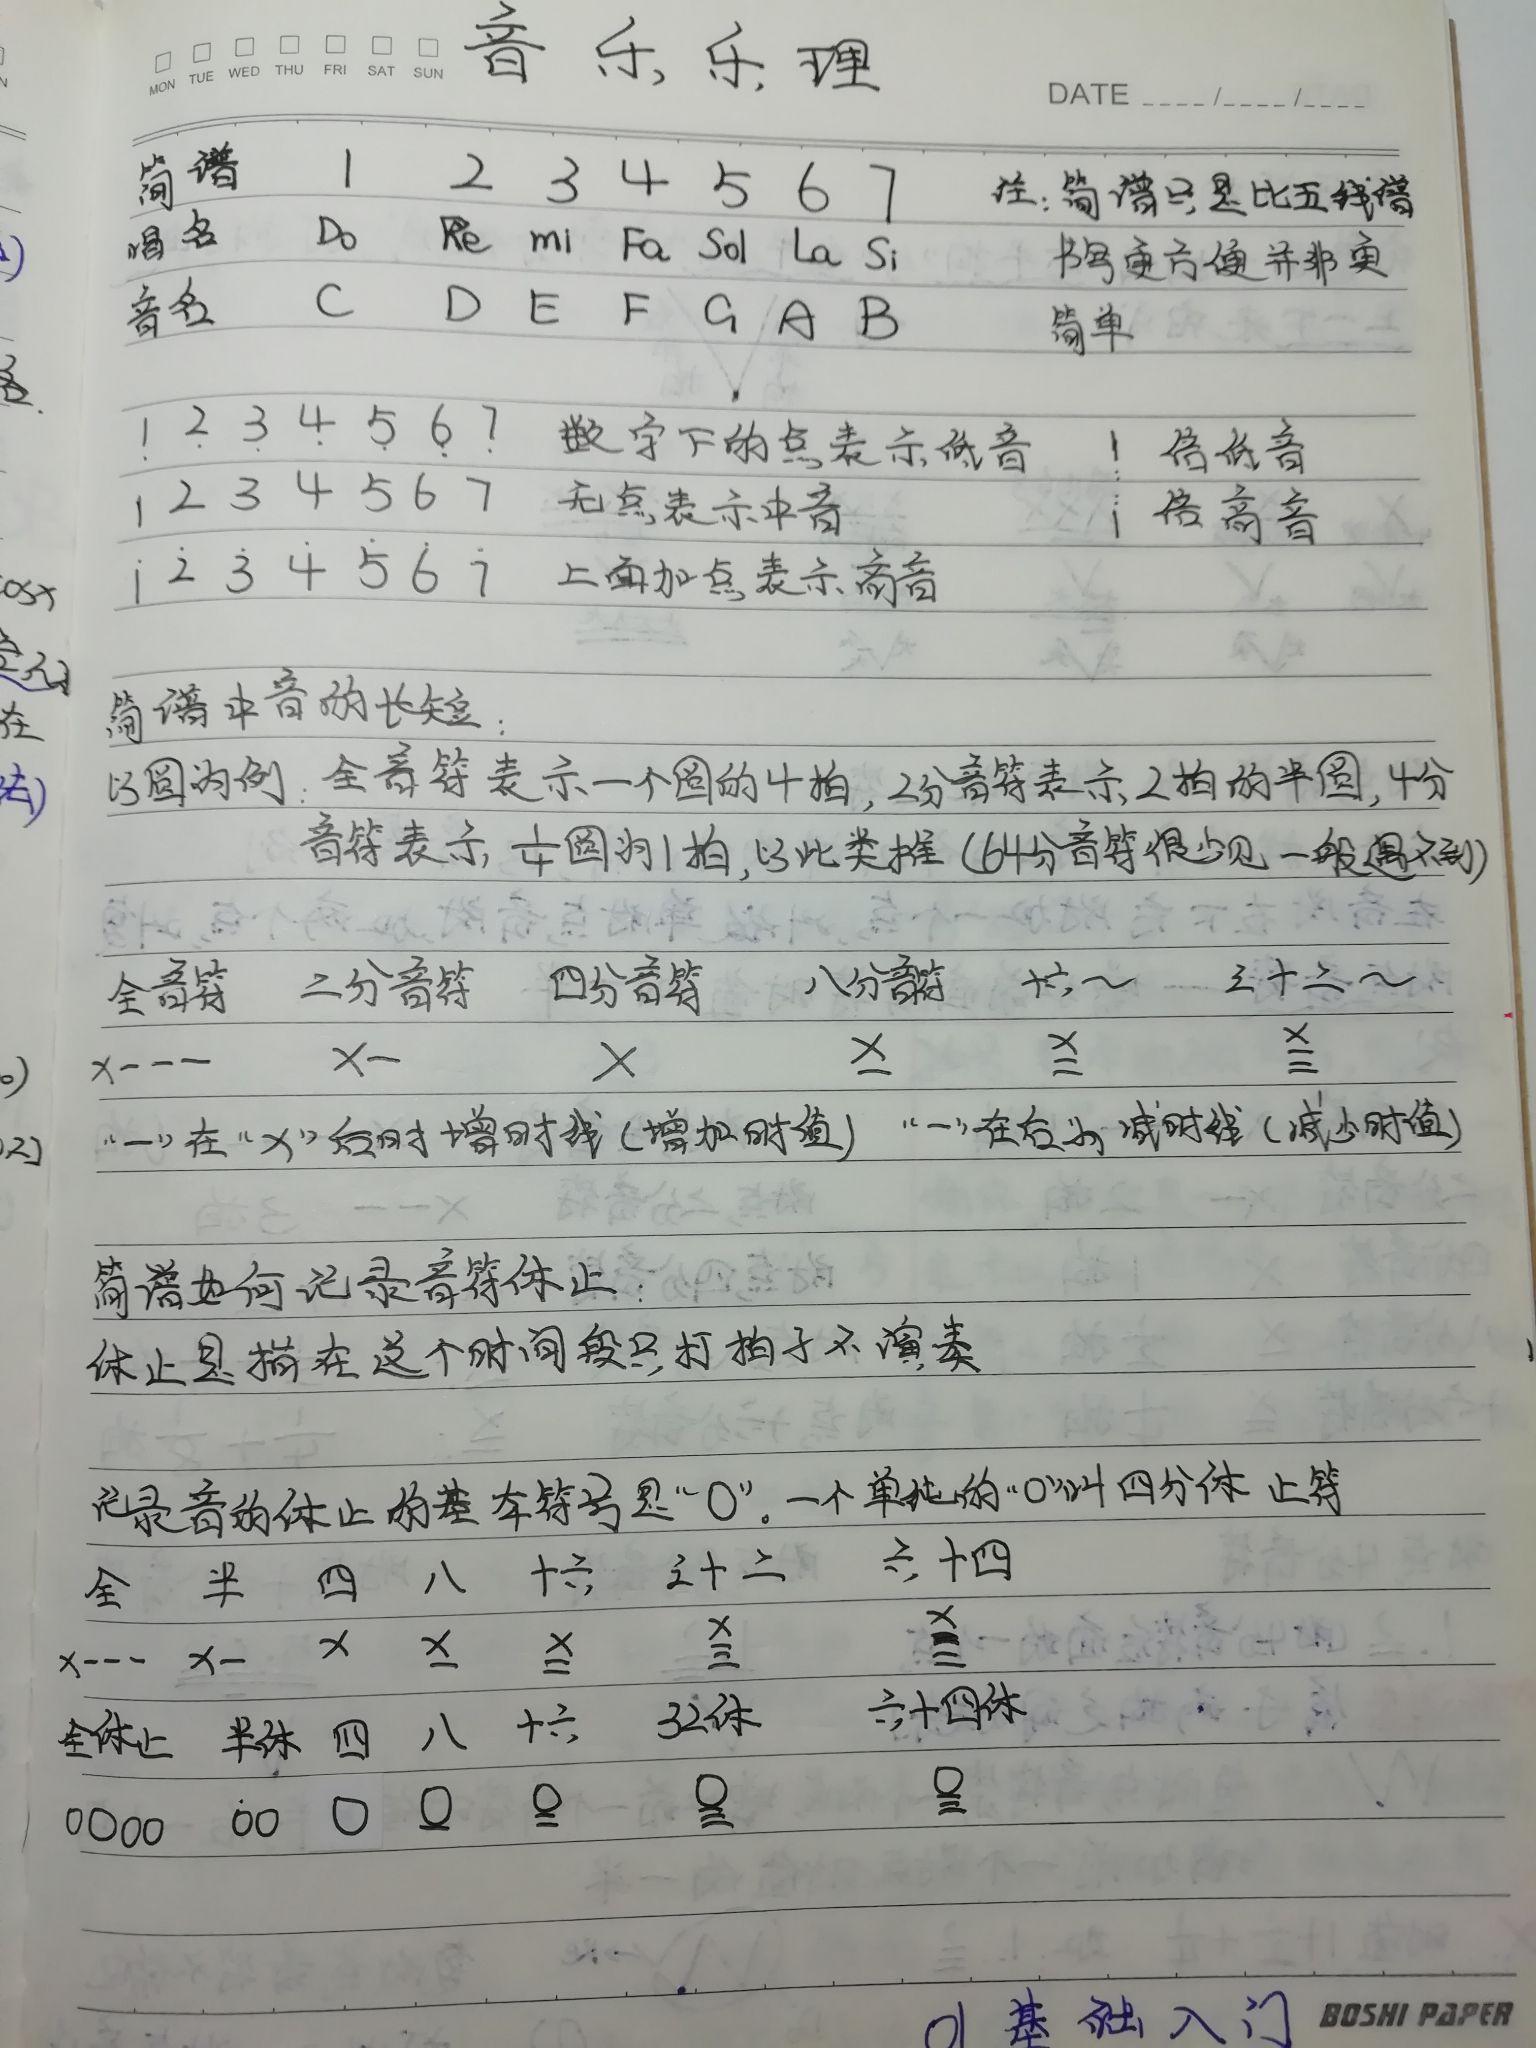 MON TUE WED THU FRI SAT SUN
音乐乐理
DATE ____/____/____
简谱 1 2 3 4 5 6 7 注:简谱只是比五线谱
唱名 Do Re mi Fa Sol La Si 书写更方便并非更
音名 C D E F G A B 简单
1̣ 2̣ 3̣ 4̣ 5̣ 6̣ 7̣ 数字下的点表示低音 1̣̣ 倍低音
1 2 3 4 5 6 7 无点表示中音 i 倍高音
1̇ 2̇ 3̇ 4̇ 5̇ 6̇ 7̇ 上面加点表示高音
简谱中音的长短:
以圆为例:全音符表示一个圆的4拍,2分音符表示2拍的半圆,4分
音符表示 1/4圆为1拍,以此类推(64分音符很少见 一般遇不到)
全音符 二分音符 四分音符 八分音符 十六~ 三十二~
X--- X- X X X X
"一"在"X"后时 增时线(增加时值) "一"在右为减时线(减少时值)
简谱如何记录音符休止:
休止是指在这个时间段只打拍子不演奏
记录音的休止的基本符号是"0"。一个单纯的"0"叫四分休止符
全 半 四 八 十六 三十二 六十四
X--- X- X X X X X
全休止 半休 四 八 十六 32休 六十四休
0000 00 0 0 0 0 0
01基础入门
BOSHI PAPER